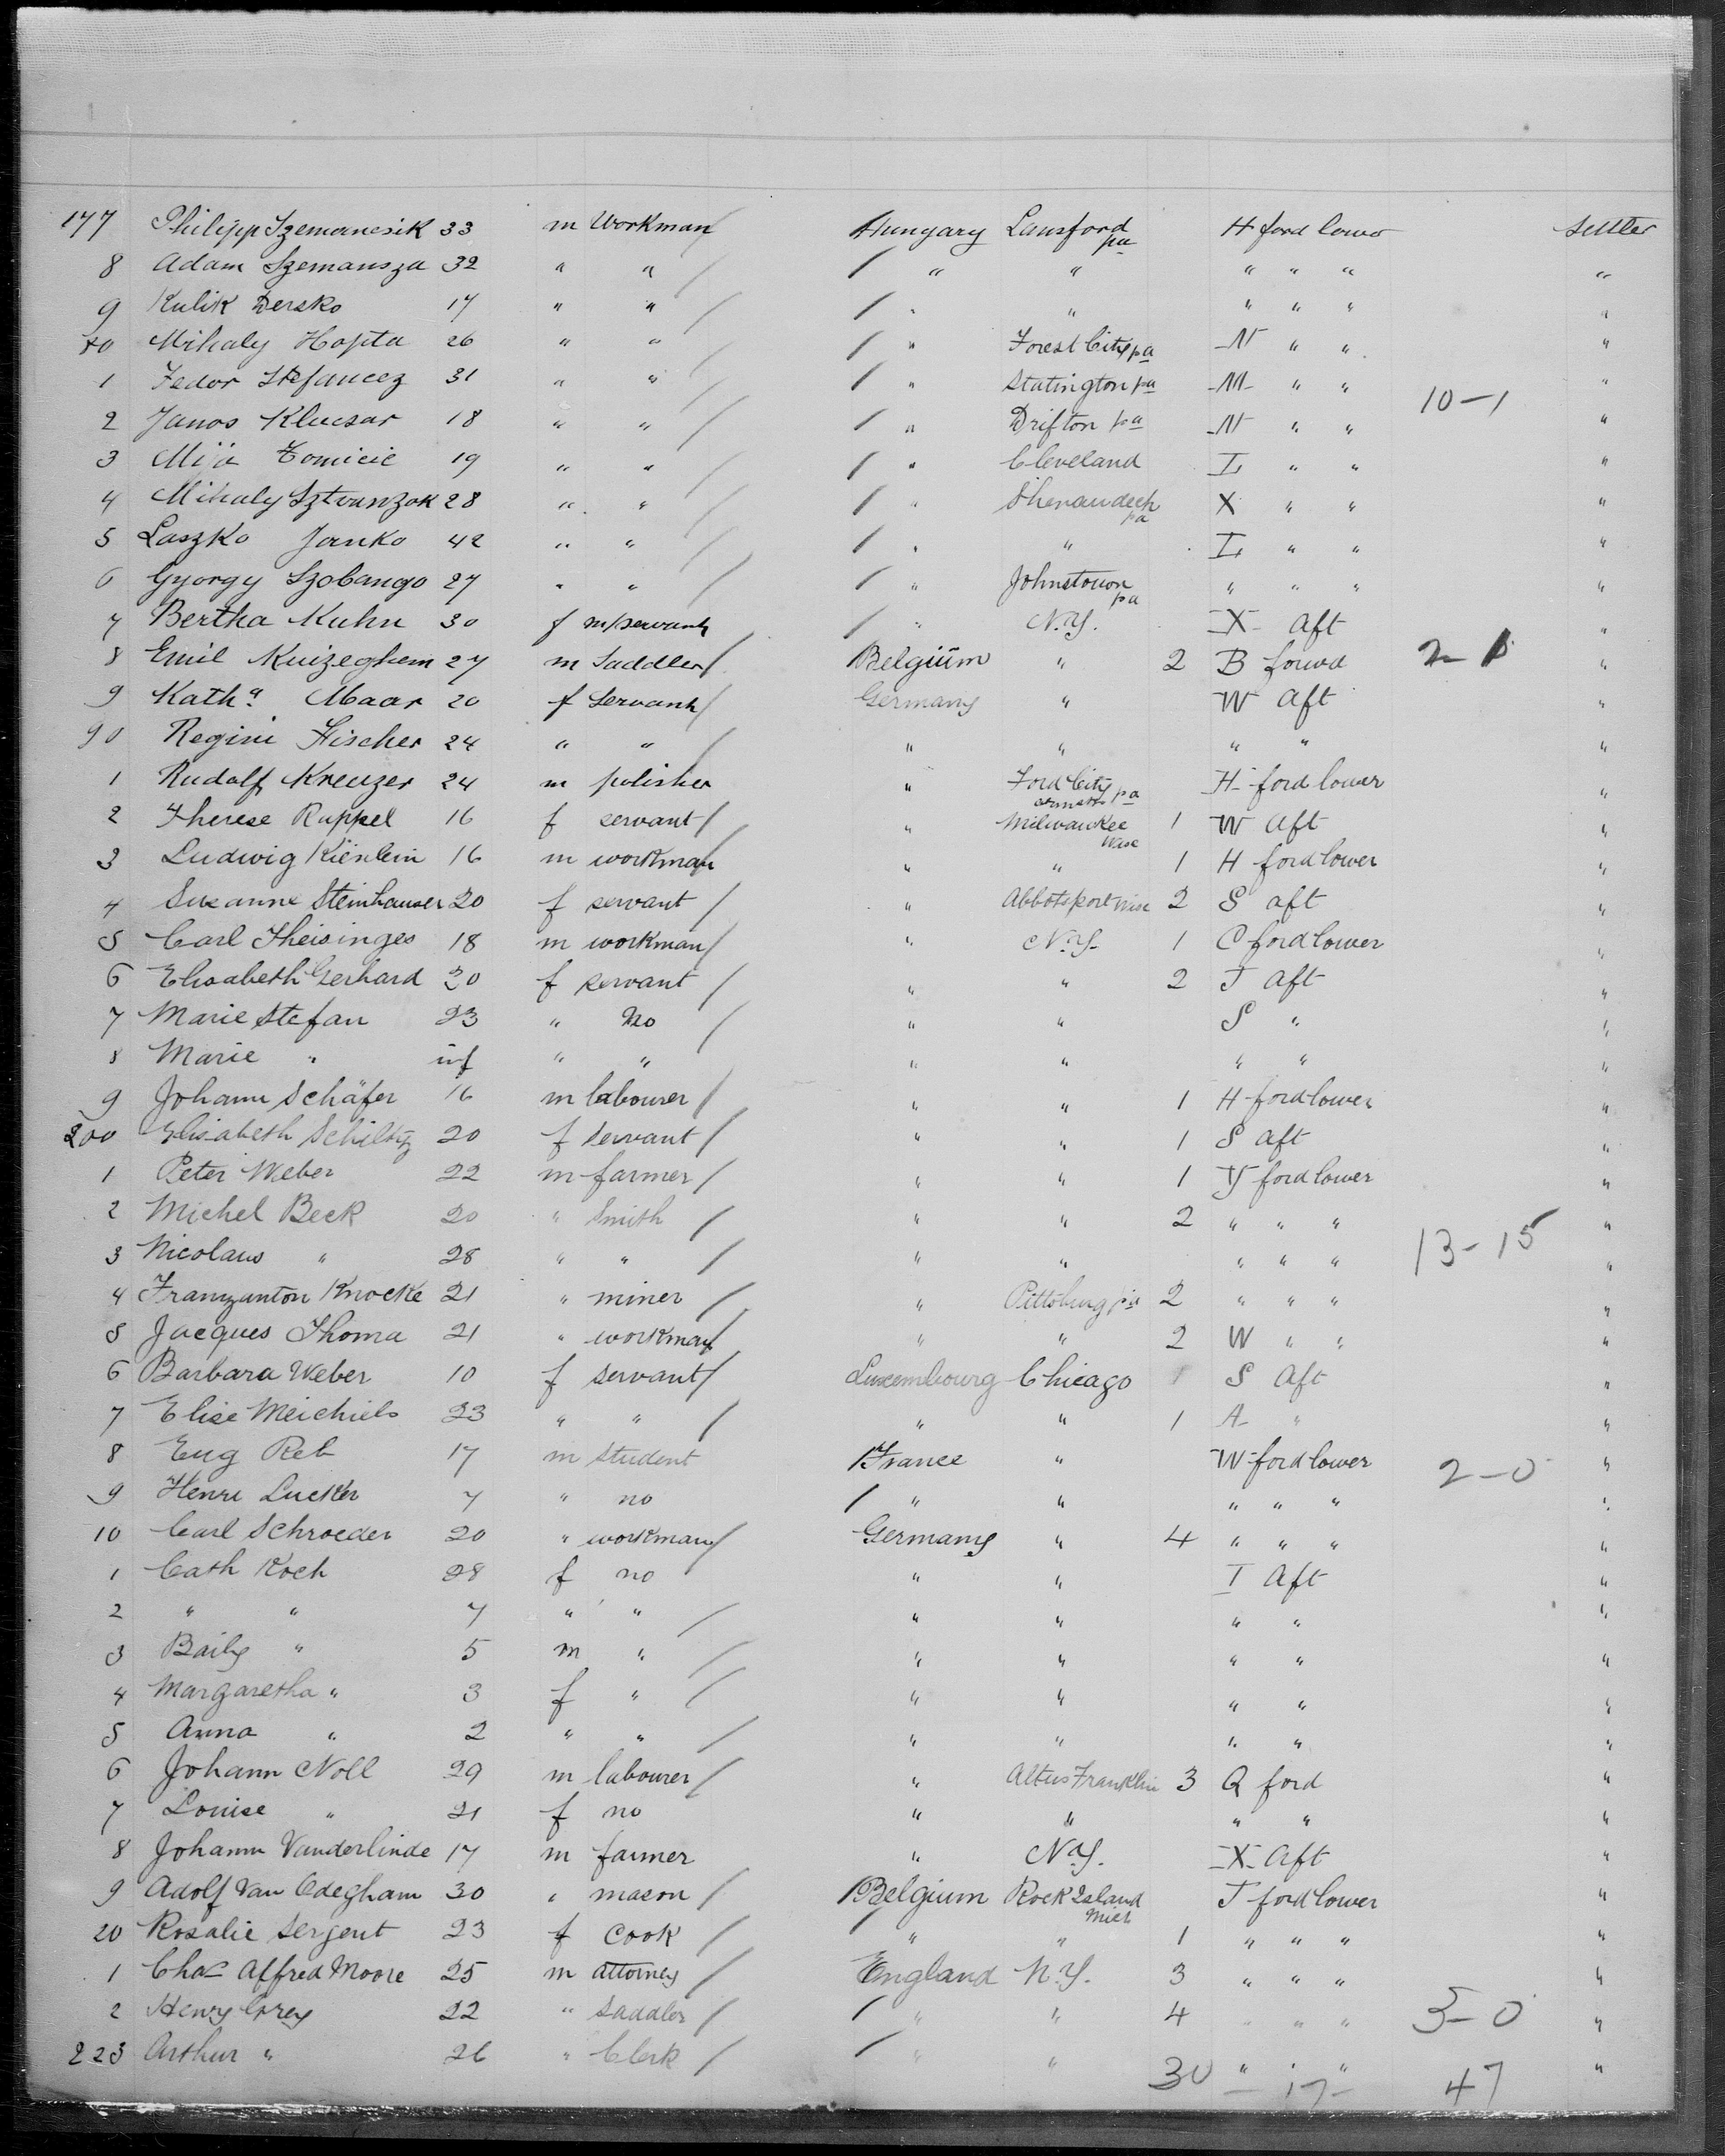 177 Philipp Szemancsik 33 m Workman Hungary Lansford pa H ford lower Settler
8 Adam Szemansza 32 " " " " " " " "
9 Kulik Dersko 17 " " " " " " " "
80 Mihaly Hopta 26 " " " Forest City pa N " " "
1 Fedor Stefancez 31 " " " Statington pa M " " "
10-1
2 Janos Klucsar 18 " " " Drifton pa N " " "
3 Mija Tomicic 19 " " " Cleveland I " " "
4 Mihaly Sztvanzok 28 " " " Shenandech pa X " " "
5 Laszko Janko 42 " " " " I " " "
6 Gyorgy Szobango 27 " " " Johnstown pa " " " "
7 Bertha Kuhn 30 f m/servant " N.Y. X Aft "
8 Emil Kuizeghem 27 m Saddler Belgium " 2 B forwd 2-1 "
9 Katha Maar 20 f Servant Germany " W Aft "
90 Regini Fischer 24 " " " " " " "
1 Rudolf Kreuzer 24 m polisher " Ford City pa H ford lower "
2 Therese Ruppel 16 f servant " Milwaukee Wisc 1 W Aft "
3 Ludwig Kienlein 16 m workman " " 1 H ford lower "
4 Susanne Steinhauser 20 f servant " Abbotsport Wisc 2 S aft "
5 Carl Theisinges 18 m workman " N.Y. 1 C ford lower "
6 Elisabeth Gerhard 30 f servant " " 2 T Aft "
7 Marie Stefan 23 " No " " S " "
8 Marie " inf " " " " " " "
9 Johann Schäfer 16 m labourer " " 1 H ford lower "
200 Elisabeth Schiltz 20 f Servant " " 1 S aft "
1 Peter Weber 22 m farmer " " 1 Y ford lower "
2 Michel Beck 20 " Smith " " 2 " " " "
13-15
3 Nicolaus " 28 " " " " " " " "
4 Franzanton Knocke 21 " miner " Pittsburg pa 2 " " " "
5 Jacques Thoma 21 " workman " " 2 W " " "
6 Barbara Weber 10 f servant Luxembourg Chicago 1 S Aft "
7 Elise Meichiels 23 " " " " 1 A " "
8 Eug Reb 17 m student France " W ford lower 2-0 "
9 Henri Lucker 7 " no " " " " " "
10 Carl Schroeder 20 " workman Germany " 4 " " " "
1 Cath Koch 28 f no " " I Aft "
2 " " 7 " " " " " " "
3 Baily " 5 m " " " " " "
4 Margaretha " 3 f " " " " " "
5 Anna " 2 " " " " " " "
6 Johann Noll 29 m labourer " Altus Franklin 3 Q ford "
7 Louise " 21 f no " " " " "
8 Johann Vanderlinde 17 m farmer " N.Y. X Aft "
9 Adolf Van Odegham 30 " mason Belgium Rock Island Mich T ford lower "
20 Rosalie Sergent 23 f Cook " " 1 " " " "
1 Chas Alfred Moore 25 m attorney England N.Y. 3 " " " "
2 Henry Grey 22 " Saddler " " 4 " " " 5-0 "
223 Arthur " 26 " Clerk " " " " " "
30 - 17 - 47